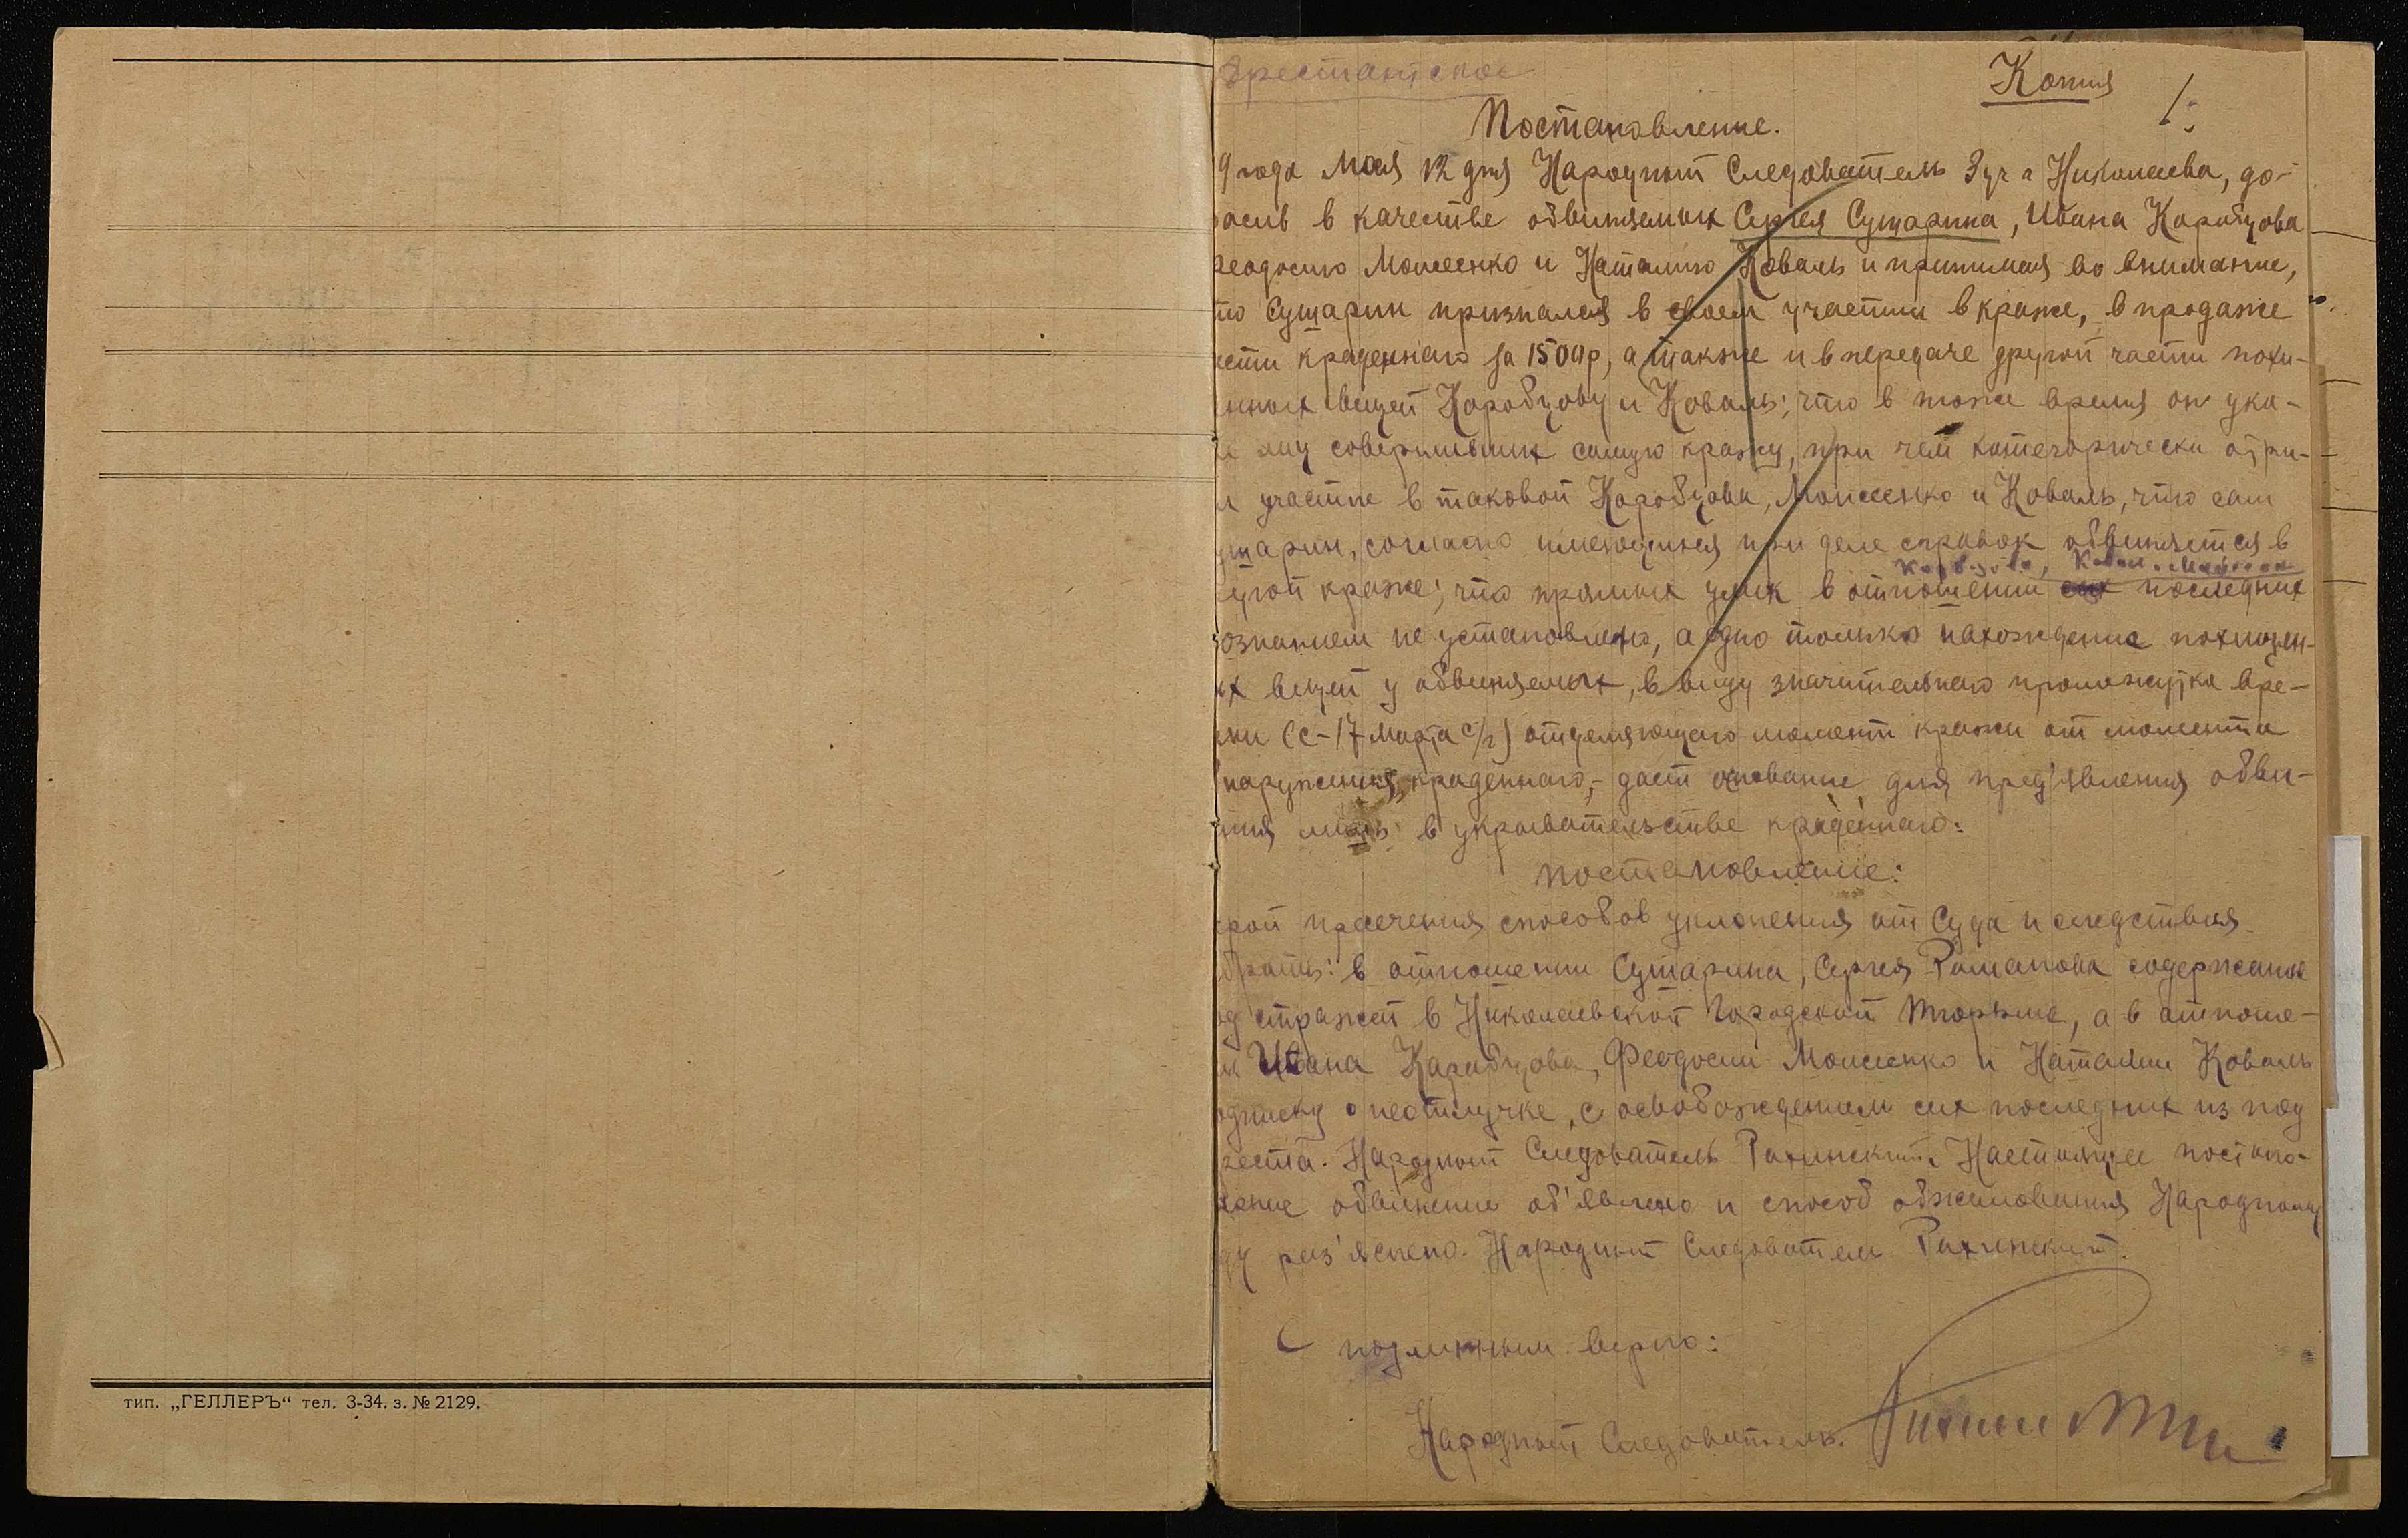 Арестантское
Копия
1.
Постановление.
9 года Мая 12 дня Народный Следователь 3 уч г Николаева, до-
росив в качестве обвиняемых Сергея Сушарина, Ивана Коробцова
Феодосию Моисеенко и Наталию Коваль и принимая во внимание,
что Сушарин признался в своем участии в краже, в продаже
части краденнаго за 1500 р, а также и в передаче другой части похи-
щенных вещей Коробцову и Коваль; что в тоже время он ука-
лиц совершивших самую кражу, при чем категорически отри-
участие в таковой Коробцова, Моисеенко и Коваль, что сам
Сушарин, согласно имеющихся при деле справок обвиняется в
Коробцова, Коваль и Моисеенко
другой краже; что прямых улик в отношении сих последних
дознанием не установлено, а одно только нахождение похищен-
ных вещей у обвиняемых, в виду значительнаго промежутка вре-
мени (с 17 марта с/г) отделяющаго момент кражи от момента
обнаружения краденнаго,- дает основание для пред'явления обви-
нения лишь в укрывательстве краденнаго:
постановление:
мерой пресечения способов уклонения от Суда и следствия
избрать: в отношении Сушарина, Сергея Романова содержание
под стражей в Николаевской Городской тюрьме, а в отноше-
нии Ивана Коробцова, Феодосии Моисеенко и Наталии Коваль
подписку о неотлучке, с освобождением сих последних из под
ареста. Народный Следователь Рахинский. Настоящее постано-
вление обвиняемым об'явлено и способ обжалования Народному
Суду раз'яснено. Народный Следователь Рахинский.
С подлинным верно:
Народный Следователь
тип. „ГЕЛЛЕРЪ“ тел. 3-34. з. № 2129.